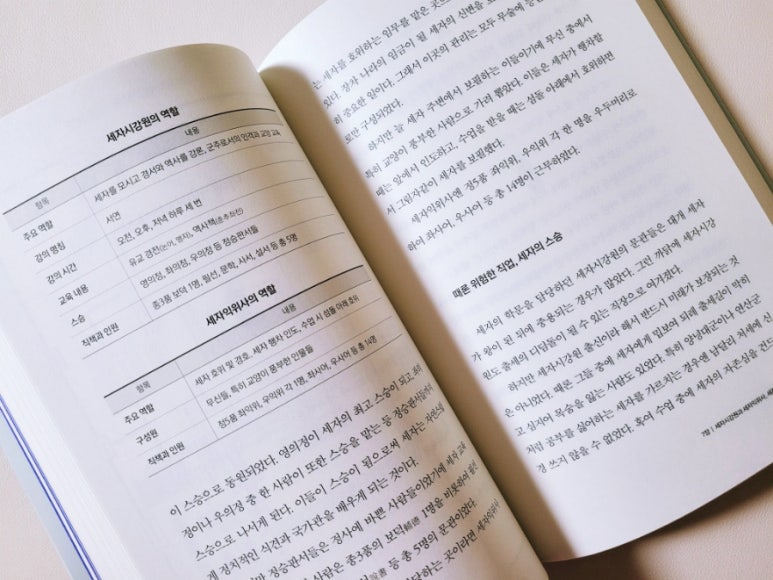 세자시강원의 역할
항목 내용
주요 역할 세자를 모시고 경서와 역사를 강론, 군주로서의 인격과 교양 교육
강의 명칭 서연
강의 시간 오전, 오후, 저녁 하루 세 번
교육 내용 유교 경전(논어, 맹자), 역사책(춘추좌전)
스승 영의정, 좌의정, 우의정 등 정승판서들
직책과 인원 종3품 보덕 1명, 필선, 문학, 사서, 설서 등 총 5명
세자익위사의 역할
항목 내용
주요 역할 세자 호위 및 경호, 세자 행차 인도, 수업 시 섬돌 아래 호위
구성원 무신들, 특히 교양이 풍부한 인물들
직책과 인원 정5품 좌익위, 우익위 각 1명, 좌사어, 우사어 등 총 14명
이 스승으로 동원되었다. 영의정이 세자의 최고 스승이 되고, 좌의
정이나 우의정 중 한 사람이 또한 스승을 맡는 등 정승판서들까지
스승으로 나서게 된다. 이들이 스승이 됨으로써 세자는 자연스럽
게 정치적인 식견과 국가관을 배우게 되는 것이다.
정승판서들은 정사에 바쁜 사람들이었기에 세자 교육
사람은 종3품의 보덕輔德 1명을 비롯하여 필선
등 총 5명의 문관이었다.
당하는 곳이라면 세자익위사
는 세자를 호위하는 임무를 맡은 곳으
있다. 장차 나라의 임금이 될 세자의 신변을 보
히 중요한 일이다. 그래서 이곳의 관리는 모두 무술에 능
로만 구성되었다.
하지만 늘 세자 주변에서 보필하는 이들이기에 무신 중에서
특히 교양이 풍부한 사람으로 가려 뽑았다. 이들은 세자가 행차할
때는 앞에서 인도하고, 수업을 받을 때는 섬돌 아래에서 호위하면
서 그림자같이 세자를 보필했다.
세자익위사엔 정5품 좌익위, 우익위 각 한 명을 우두머리로
하여 좌사어, 우사어 등 총 14명이 근무하였다.
때론 위험한 직업, 세자의 스승
세자의 학문을 담당하던 세자시강원의 문관들은 대개 세자
가 왕이 된 뒤에 중용되는 경우가 많았다. 그런 까닭에 세자시강
원도 출세의 디딤돌이 될 수 있는 직장으로 여겨졌다.
하지만 세자시강원 출신이라 해서 반드시 미래가 보장되는 것
은 아니었다. 때론 그들 중에 세자에게 밉보여 되레 출세길이 막히
고 심지어 목숨을 잃는 사람도 있었다. 특히 양녕대군이나 연산군
처럼 공부를 싫어하는 세자를 가르치는 경우엔 남달리 처세에 신
경 쓰지 않을 수 없었다. 혹여 수업 중에 세자의 자존심을 건드
7장 | 세자시강원과 세자익위사,